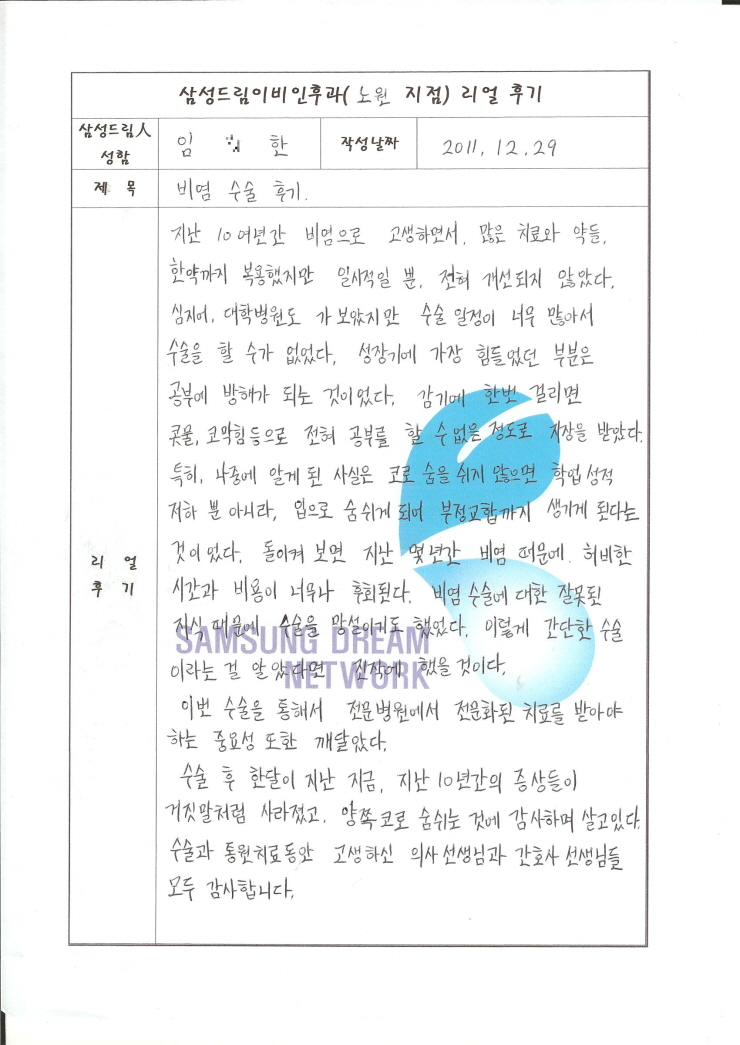 삼성드림이비인후과( 노원 지점) 리얼 후기
삼성드림人
성함
임 한
작성날짜
2011. 12. 29
제 목
비염 수술 후기.
리 얼
후 기
지난 10여년간 비염으로 고생하면서, 많은 치료와 약들,
한약까지 복용했지만 일시적일 뿐, 전혀 개선되지 않았다.
심지어, 대학병원도 가 보았지만 수술 일정이 너무 많아서
수술을 할 수가 없었다. 성장기에 가장 힘들었던 부분은
공부에 방해가 되는 것이었다. 감기에 한번 걸리면
콧물, 코막힘등으로 전혀 공부를 할 수 없을 정도로 지장을 받았다.
특히, 나중에 알게 된 사실은 코로 숨을 쉬지 않으면 학업성적
저하 뿐 아니라, 입으로 숨쉬게 되어 부정교합까지 생기게 된다는
것이었다. 돌이켜 보면 지난 몇년간 비염 때문에 허비한
시간과 비용이 너무나 후회된다. 비염 수술에 대한 잘못된
지식 때문에 수술을 망설이기도 했었다. 이렇게 간단한 수술
이라는 걸 알았다면 진작에 했을 것이다.
이번 수술을 통해서 전문병원에서 전문화된 치료를 받아야
하는 중요성 또한 깨달았다.
수술 후 한달이 지난 지금, 지난 10년간의 증상들이
거짓말처럼 사라졌고, 양쪽 코로 숨쉬는 것에 감사하며 살고있다.
수술과 통원치료동안 고생하신 의사 선생님과 간호사 선생님들
모두 감사합니다.
SAMSUNG DREAM
NETWORK